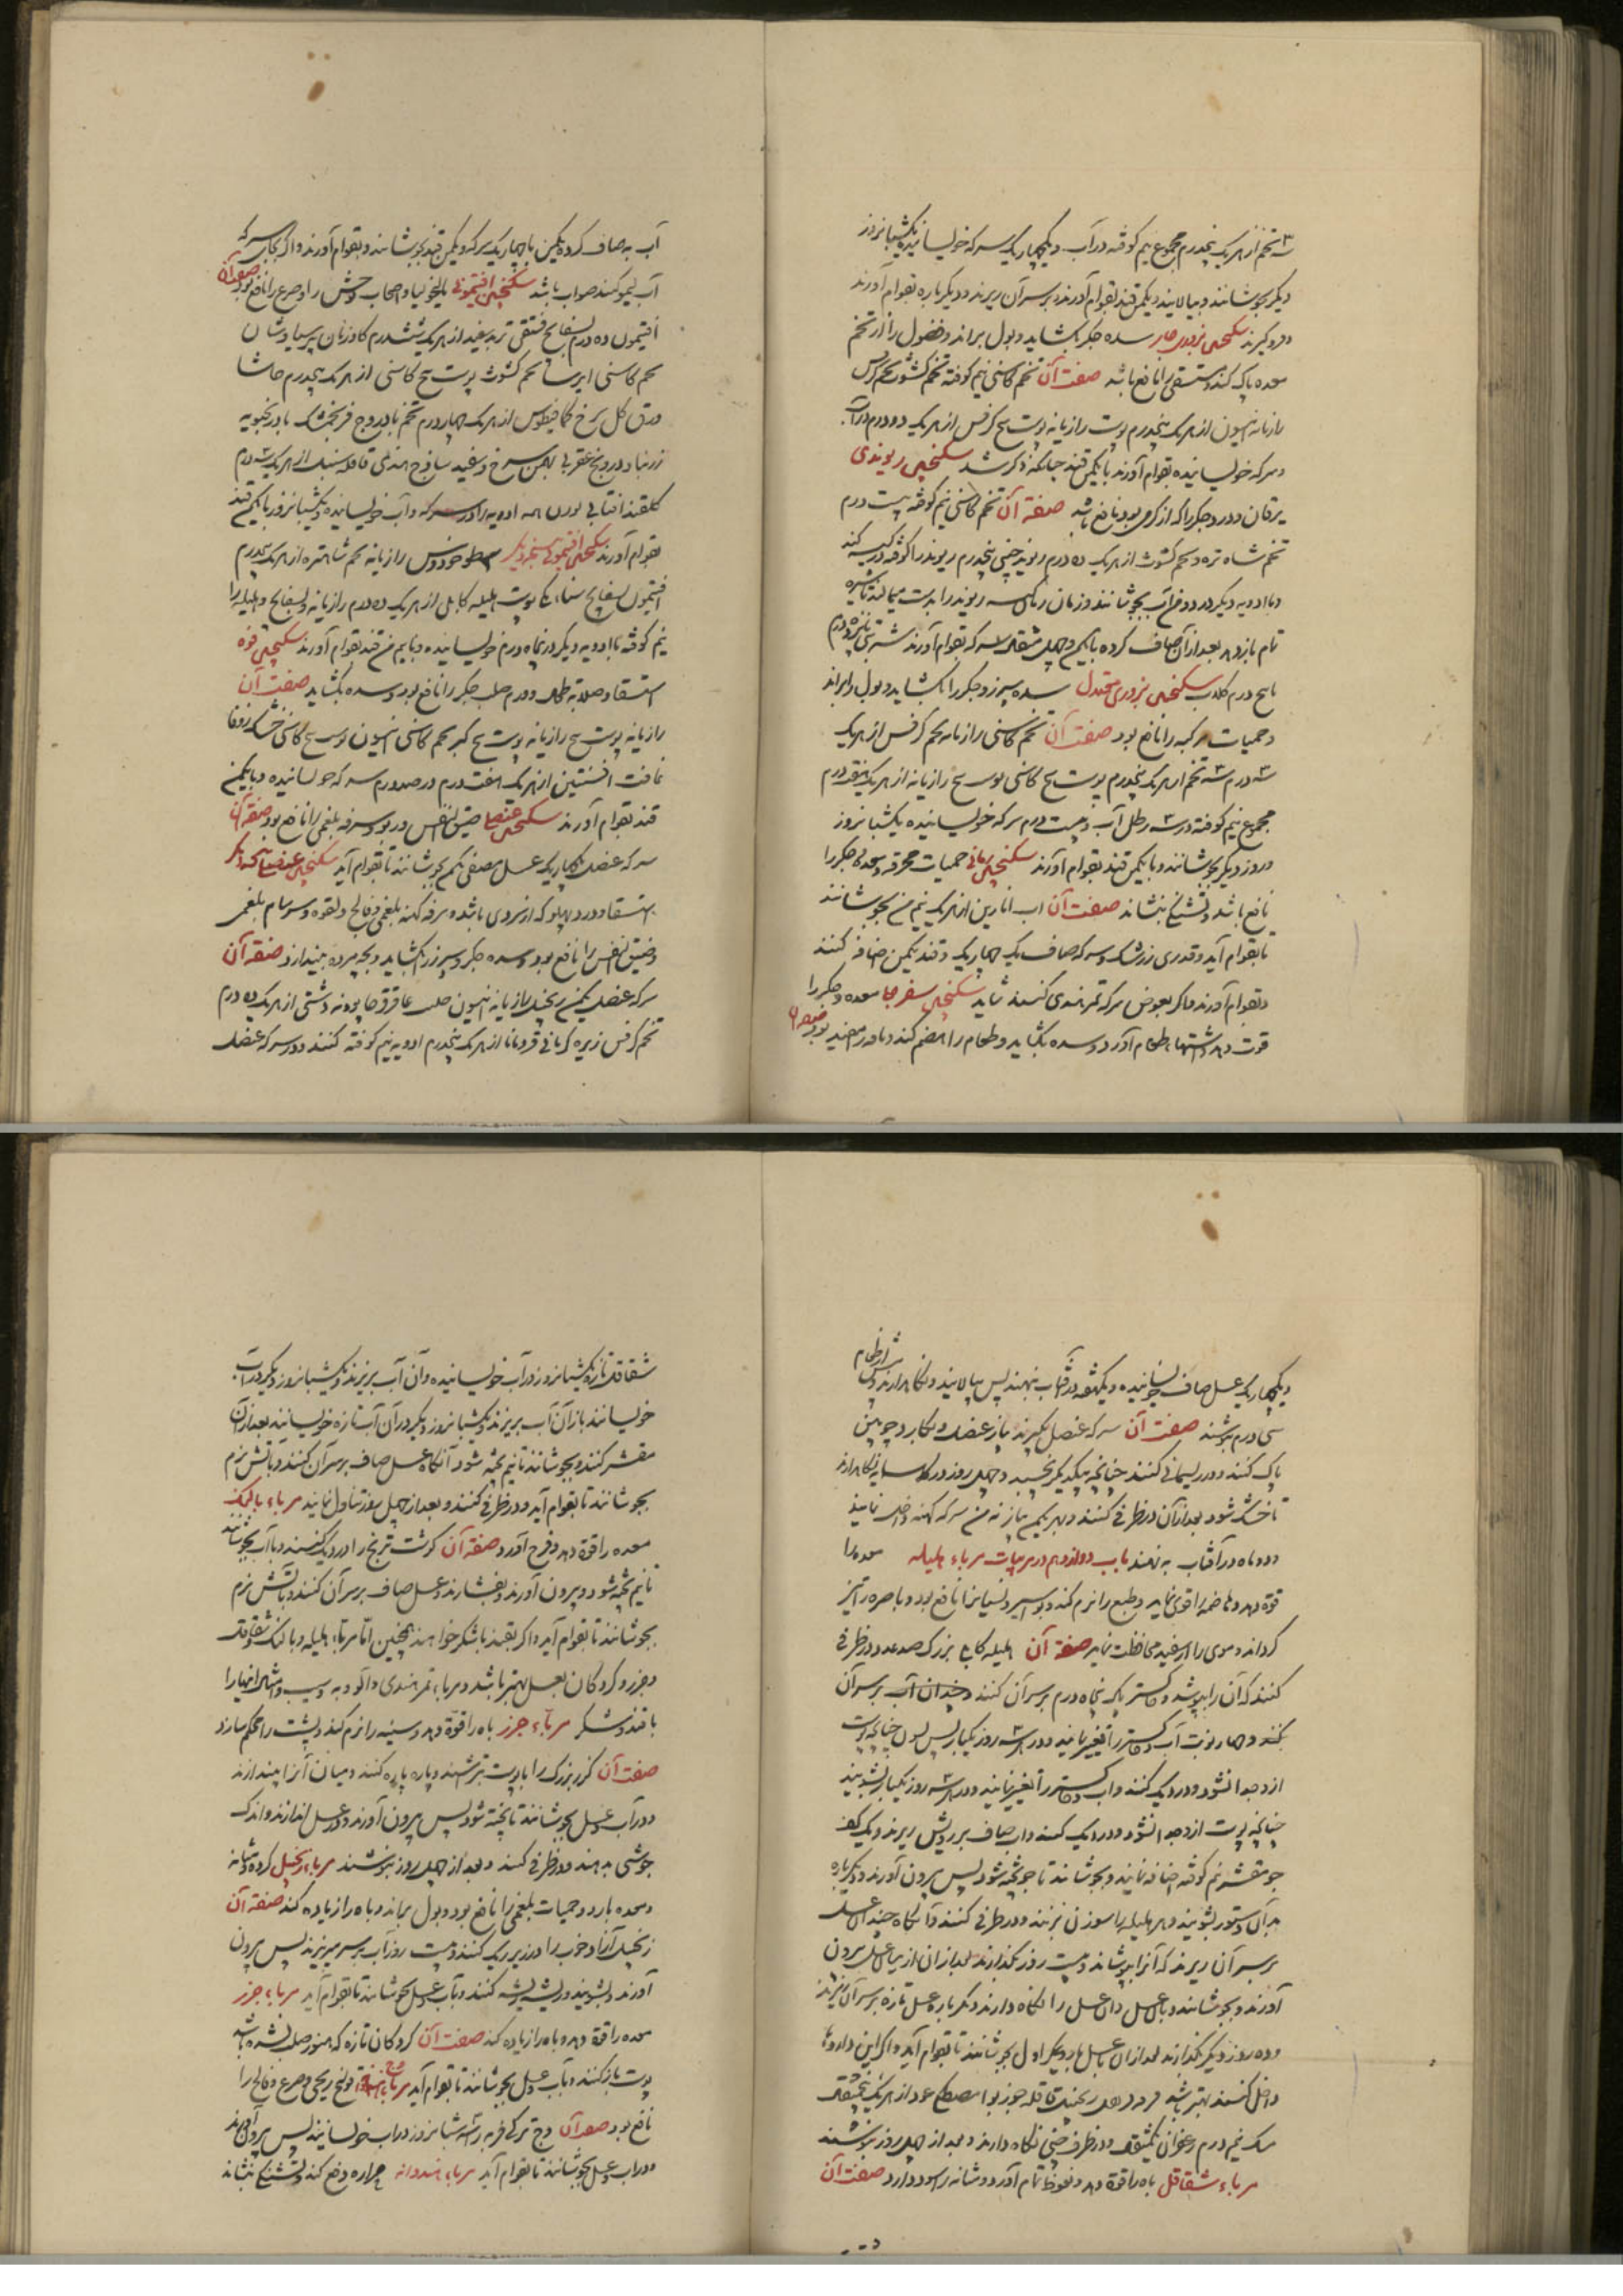 تخم از هر یک پنجدرم مجموع نیم کوفته در آب و یکچهاریک سرکه خولسانیده یکشبانروز
دیگر بجوشانند و بپالایند و یکمن قند بقوام آورند و بر سر آن ریزند و دیگرباره بقوام آورند
و فرو گیرند سکنجبین بزوری حار سده جکر بکشاید و بول براند و فضول را از تخم
معده پاک کند و مستسقی را نافع باشد صفت آن تخم کاسنی نیم کوفته تخم کشوث تخم کرفس
رازیانه انیسون از هر یک پنجدرم پوست رازیانه پوست بیخ کرفس از هر یک ده درم در آب
و سرکه خولسانیده بقوام آورند با یکمن قند چنانکه ذکر شد سکنجبین ریوندی
یرقان و درد جکر را که از کرمی بود نافع باشد صفة آن تخم کاسنی نیم کوفته بیست درم
تخم شاه تره و تخم کشوث از هر یک ده درم ریوند چینی پنجدرم ریوند را کوفته در کیسه کنند
و با ادویه دیگر در دو من آب بجوشانند و زمان زمان کیسه ریوند را بدست میمالند تا شیره
تمام باز دهد بعد از آن صاف کرده با یکمن و چهل مثقال سرکه بقوام آورند شربتی پانزده درم
با پنج درم کلاب سکنجبین بزوری معتدل سده سپرز و جکر را بکشاید و بول را براند
و حمیات مرکبه را نافع بود صفت آن تخم کاسنی رازیانه تخم کرفس از هر یک
سه درم سه تخم از هر یک پنجدرم پوست بیخ کاسنی پوست بیخ رازیانه از هر یک هفتدرم
مجموع نیم کوفته در سه رطل آب و بیست درم سرکه خولسانیده یکشبانروز
و روز دیگر بجوشانند و با یکمن قند بقوام آورند سکنجبین رمانی حمیات محرقه و معده و جکر را
نافع باشد و تشنکی بنشاند صفت آن آب انارین از هر یک نیم من بجوشانند
تا بقوام آید و قدری زرشک و سرکه صاف یک چهاریک و قند یکمن اضافه کنند
و بقوام آورند و اکر بعوض سرکه تمر هندی کنند شاید سکنجبین سفرجلی معده و جکر را
قوت دهد و اشتهاء طعام آورد و سده بکشاید و طعام را هضم کند و ناقه را مفید بود صفة آن
آب به صاف کرده یکمن با چهاریک سرکه و یکمن قند بجوشانند و بقوام آورند و اکر بجای سرکه
آب لیمو کنند صواب باشد سکنجبین افتیمونی مالیخولیا و اصحاب وحش را و صرع را نافع بود صفة آن
افتیمون ده درم بسفایج فستقی تربد سفید از هر یک ششدرم کاوزبان پرسیاوشان
تخم کاسنی ایرسا تخم کشوث پوست بیخ کاسنی از هر یک پنجدرم حاشا
ورق کل سرخ کمافیطوس از هر یک چهاردرم تخم بادروج فرنجمشک بادرنجبویه
زرنباد درونج عقربی بهمن سرخ و سفید ساذج هندی قاقله سنبل از هر یک سه درم
کلقند آفتابی همه ادویه را در سرکه و آب خولسانیده یکشبانروز با یکمن قند
بقوام آورند سکنجبین افتیمونی بنسخه دیکر اسطوخودوس رازیانه تخم شاهتره از هر یک پنجدرم
افتیمون بسفایج سناء مکی پوست هلیله کابلی از هر یک ده درم رازیانه و بسفایج و هلیله را
نیم کوفته با ادویه دیکر در پنجاه درم خولسانیده و با نیم من قند بقوام آورند سکنجبین فوه
استسقا و صلابة طحال و ورم صلب جکر را نافع بود و سده بکشاید صفت آن
رازیانه پوست بیخ رازیانه پوست بیخ کبر تخم کاسنی انیسون پوست بیخ کاسنی خشک زوفا
غافث افسنتین از هر یک هفت درم در صد درم سرکه خولسانیده و با یکمن
قند بقوام آورند سکنجبین عنصلی ضیق النفس و ربو و سرفه بلغمی را نافع بود صفة آن
سرکه عنصل یکچهاریک عسل مصفی یکمن بجوشانند تا بقوام آید سکنجبین عنصلی بنسخه دیکر
استسقا و درد پهلو که از سردی باشد و سرفه کهنه بلغمی و فالج و لقوه و سرسام بلغمی
و ضیق النفس را نافع بود و سده جکر و سپرز را بکشاید و بچه مرده بیندازد صفة آن
سرکه عنصل یکمن زنجبیل رازیانه انیسون حلبه عاقرقرحا پودنه دشتی از هر یک ده درم
تخم کرفس زیره کرمانی قردمانا از هر یک پنجدرم ادویه نیم کوفته کنند و در سرکه عنصل
و یکچهاریک عسل صاف خولسانیده و یکهفته در آفتاب بنهند پس بپالایند و نکاه دارند و پیش از طعام
سی درم بنوشند صفت آن سرکه عنصل بکیرند پیاز عنصل و بکارد چوبین
پاک کنند و در ریسمانی کنند چنانچه بیکدیکر نچسپد و چهل روز در سایه نکاه دارند
تا خشک شود بعد از آن در ظرفی کنند و بهر یکمن پیاز نه من سرکه کهنه داخل نمایند
و دو ماه در آفتاب بنهند باب دوازدهم در مربیات مرباء هلیله معده را
قوة دهد و هاضمه را قوی نماید و طبع را نرم کند و بواسیر و نسیان را نافع بود و باصره را تیز
کرداند و موی را از سفیدی محافظت نماید صفة آن هلیله کابلی بزرک صد عدد در ظرفی
کنند که آن را بپوشد و خاکستر پاک پنجاه درم بر سر آن کنند و چندان آب بر سر آن
کنند و چهار نوبت آب و خاکستر را تغییر نمایند و در هر سه روز یکبار پس چنانچه پوست
از او جدا نشود و در دیک کنند و آب و خاکستر را تغییر نمایند و در هر سه روز یکبار بشویند
چنانچه پوست از او جدا نشود و در دیک کنند و آب صاف بر رویش ریزند و یک کف
جو مقشر نیم کوفته اضافه نمایند و بجوشانند تا جو پخته شود پس بیرون آورند و دیکرباره
بدان دستور بشویند و هر هلیله را سوزن بزنند و در ظرفی کنند و آنکاه چندان عسل
بر سر آن ریزند که آنرا بپوشاند و بیست روز بکذارند بعد از آن از میان عسل بیرون
آورند و بجوشانند و با عسل و آن عسل را نکاه دارند و دیکرباره عسل تازه بر سر آن ریزند
و ده روز دیکر بکذارند بعد از آن با عسل بار دیکر اول بجوشانند تا بقوام آید و اکر این داروها
داخل کنند بهتر باشد زنجبیل قاقله جوزبوا مصطکی عود از هر یک
مشک نیم درم زعفران یکمثقال و در ظرف چینی نکاه دارند و بعد از چهل روز بنوشند
مرباء شقاقل باه را قوة دهد و نعوظ تمام آورد و مثانه را سود دارد صفت آن
شقاقل تازه یکشبانروز در آب خولسانیده و آن آب بریزند و یکشبانروز دیکر در آب
خولسانند باز آن آب بریزند و یکشبانروز دیکر در آن آب تازه خولسانند بعد از آن
مقشر کنند و بجوشانند تا نیم پخته شود آنکاه عسل صاف بر سر آن کنند و بآتش نرم
بجوشانند تا بقوام آید و در ظرفی کنند و بعد از چهل روز تناول نمایند مرباء بالنک
معده را قوة دهد و فرح آورد صفة آن کوشت ترنج را در دیک کنند و با آب بجوشانند
تا نیم پخته شود و بیرون آورند و بفشارند و عسل صاف بر سر آن کنند و بآتش نرم
بجوشانند تا بقوام آید و اکر بقند یا شکر خواهند همچنین اما مرباء هلیله و بالنک و شقاقل
و جزر و کردکان بعسل بهتر باشد و مرباء تمر هندی و آلو و به و سیب و امثال اینها را
با قند و شکر مرباء جزر باه را قوة دهد و سینه را نرم کند و پشت را محکم سازد
صفت آن کزر بزرک را با پوست بتراشند و پاره پاره کنند و میان آنرا بیندازند
و در آب و عسل بجوشانند تا پخته شود پس بیرون آورند و در عسل اندازند و اندک
جوشی بدهند و در ظرفی کنند و بعد از چهل روز بنوشند مرباء زنجبیل کرده و مثانه
و معده بارد و حمیات بلغمی را نافع بود و بول براند و باه را زیاده کند صفة آن
زنجبیل آزاد خوب را در زیر ریک کنند و بیست روز آب بر سر میریزند پس بیرون
آورند و بشویند و ریشه ریشه کنند و بآب و عسل بجوشانند تا بقوام آید مرباء جوز
معده را قوة دهد و باه را زیاده کند صفت آن کردکان تازه که هنوز صلب نشده باشد
پوست باز کنند و بآب و عسل بجوشانند تا بقوام آید مرباء وج قولنج ریحی و صرع و فالج را
نافع بود صفة آن وج ترکی فربه را سه شبانروز در آب خولسانند پس بیرون آورند
و در آب و عسل بجوشانند تا بقوام آید مرباء هندوانه حراره دفع کند و تشنکی بنشاند